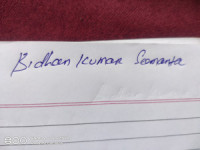 Bidhan Kumar Samanta